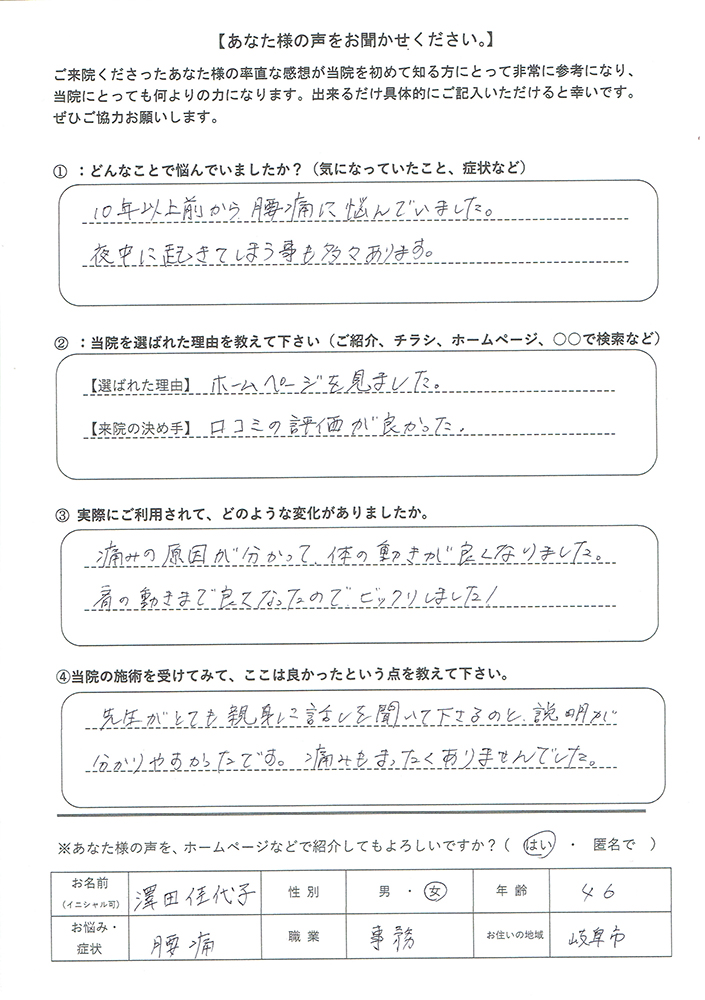 【あなた様の声をお聞かせください。】
ご来院くださったあなた様の率直な感想が当院を初めて知る方にとって非常に参考になり、
当院にとっても何よりの力になります。出来るだけ具体的にご記入いただけると幸いです。
ぜひご協力お願いします。
① ：どんなことで悩んでいましたか？（気になっていたこと、症状など）
10年以上前から、腰痛に悩んでいました。
夜中に起きてしまう事も多々あります。
② ：当院を選ばれた理由を教えて下さい（ご紹介、チラシ、ホームページ、〇〇で検索など）
【選ばれた理由】 ホームページを見ました。
【来院の決め手】 口コミの評価が良かった。
③ 実際にご利用されて、どのような変化がありましたか。
痛みの原因が分かって、体の動きが良くなりました。
肩の動きまで良くなったので、ビックリしました！
④当院の施術を受けてみて、ここは良かったという点を教えて下さい。
先生がとても親身に話しを聞いて下さるのと、説明が
分かりやすかったです。痛みもまったくありませんでした。
※あなた様の声を、ホームページなどで紹介してもよろしいですか？（ はい ・ 匿名で ）
お名前（イニシャル可） 澤田佳代子 性別 男 ・ 女 年齢 46
お悩み・症状 腰痛 職業 事務 お住いの地域 岐阜市